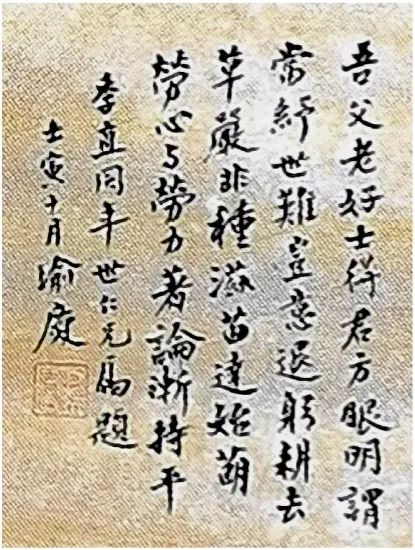 吾父老好士得君方眼明謂
當紓世難豈意退躬耕去
草嚴非種滋苗達始萌
勞心與勞力著論漸持平
孝直同年世仁兄屬題
壬寅十月瑜庭